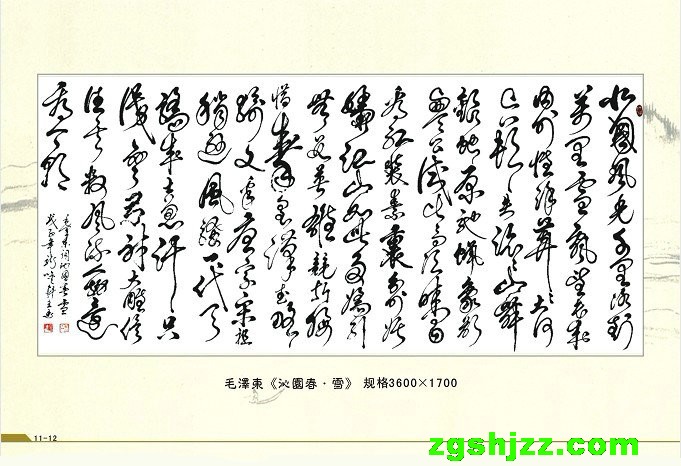 北國風光千里冰封
萬里雪飄望長城
內外惟餘莽莽大河
上下頓失滔滔山舞
銀蛇原馳蠟象欲
與天公試比高須晴日
看紅裝素裹分外妖
嬈江山如此多嬌引
無數英雄競折腰
惜秦皇漢武略
輸文采唐宗宋祖
稍遜風騷一代天
驕成吉思汗只
識彎弓射大雕俱
往矣數風流人物還
看今朝
毛澤東詞沁園春雪
毛澤東《沁園春·雪》 规格3600×1700
11-12
zgshjzz.com